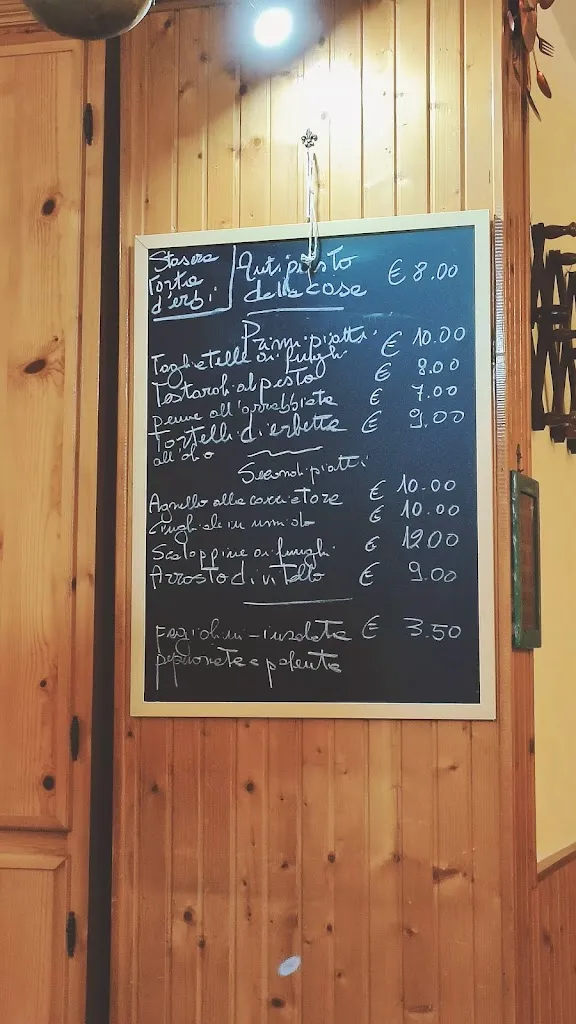 Stasera
Torta
d'erbi
Antipasto
della casa € 8.00
Primi piatti
Tagliatelle ai funghi € 10.00
Testaroli al pesto € 8.00
penne all'arrabbiata € 7.00
Tortelli d'erbette € 9.00
Secondi piatti
Agnello alla cacciatora € 10.00
Cinghiale in umido € 10.00
Scaloppine ai funghi € 12.00
Arrosto di vitello € 9.00
fagiolini - insalata € 3.50
peperonata e polenta